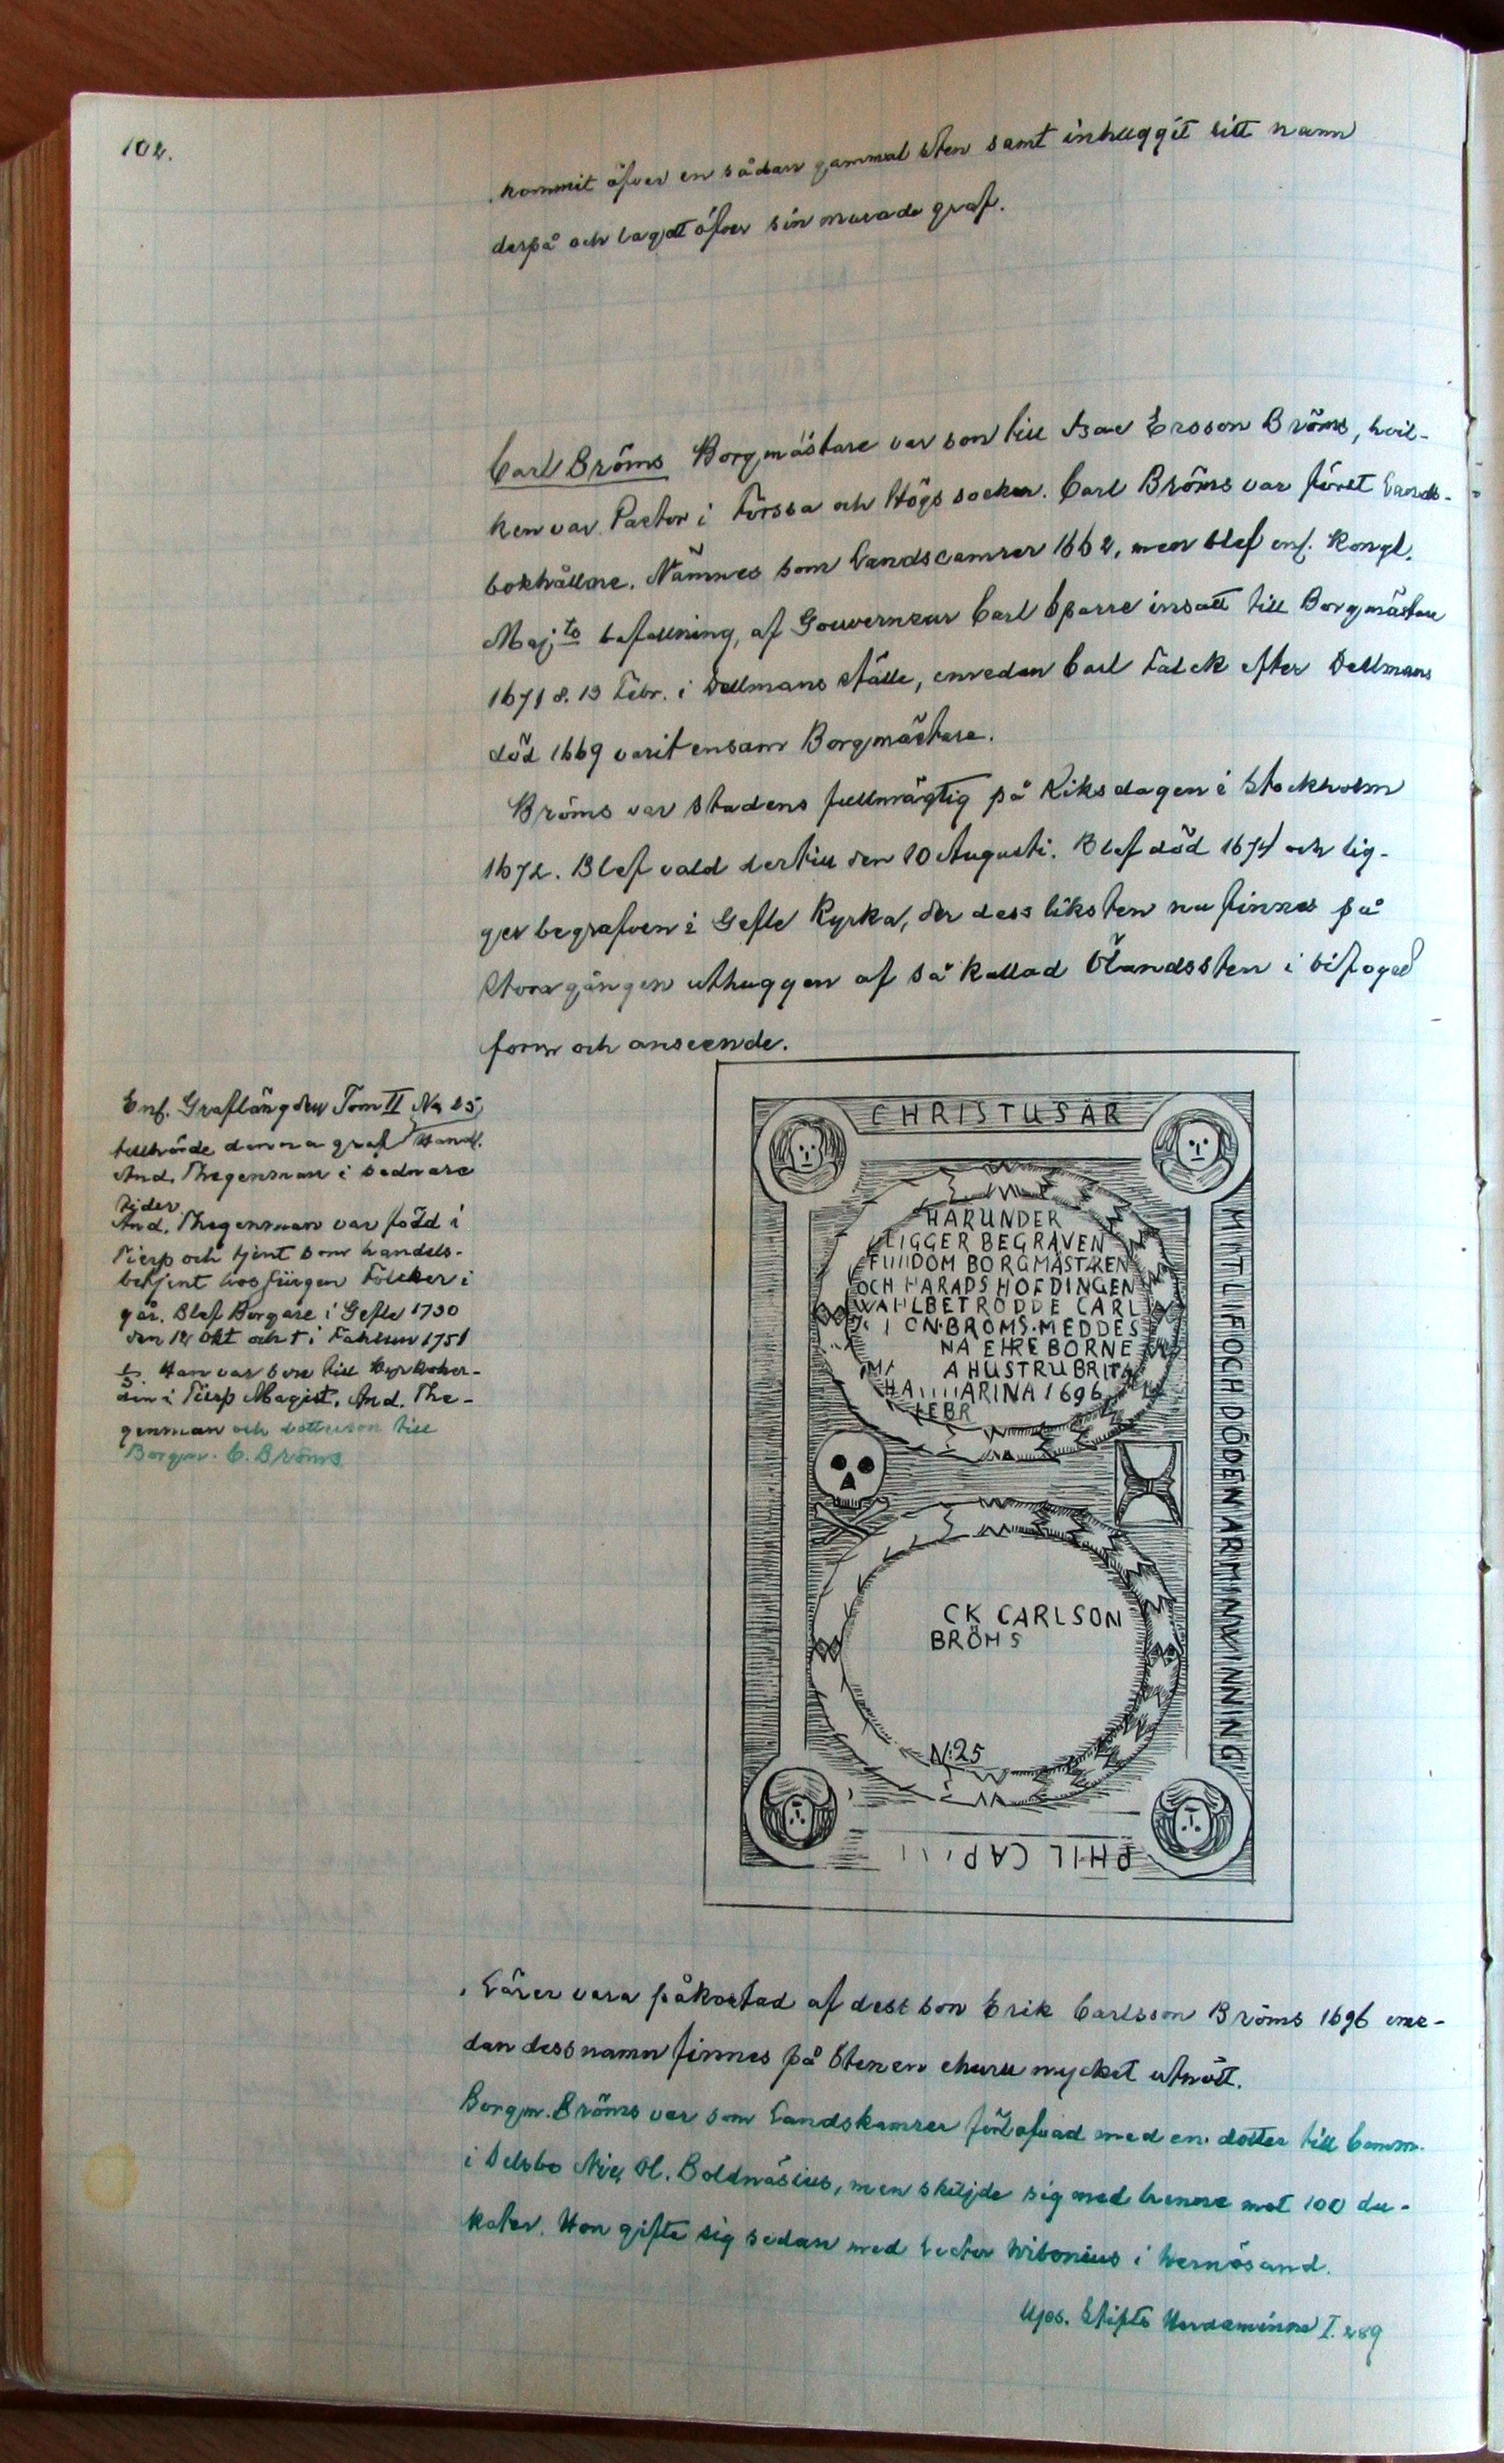 102.
kommit öfver en sådan gammal sten samt inhuggit sitt namn
derpå och lagdt öfver sin murade graf.
Carl Bröms Borgmästare var son till Isac Ersson Bröms, hvil-
ken var Pastor i Forssa och Högs socken. Carl Bröms var först Lands-
bokhållare. Nämnes som Landscamrer 1662, men blef enl. Kongl.
Maj:ts befallning, af Gouverneur Carl Sparre insatt till Borgmästare
1671 d. 13 Febr. i Dellmans ställe, enredan Carl Falck efter Dellmans
död 1669 varit ensam Borgmästare.
Bröms var stadens fullmägtig på Riksdagen i Stockholm
1672. Blef vald dertill den 10 Augusti. Blef död 1674 och lig-
ger begrafven i Gefle Kyrka, der dess liksten nu finnes på
stora gången uthuggen af så kallad Ölandssten i bifogad
form och anseende.
Enl. Graflängden Tom II No 25
tillhörde denna graf Handl.
And. Thegenman i sednare
tider.
And. Thegenman var född i
Tierp och tjent som handels-
betjent hos Jürgen Fölcker i
går. Blef Borgare i Gefle 1730
den 12 Okt och † i Fahlun 1751
Han var son till Kyrkoher-
den i Tierp Magist. And. The-
genman och dotterson till
Borgm. C. Bröms
CHRISTUSÄR
MITT LIF OCH DÖDEN AR MIN WINNING
PHIL CAP I I I
HARUNDER
LIGGER BEGRAVEN
FIIIIDOM BORGMÄSTÆREN
OCH HARADSHOFDINGEN
WAHLBETRODDE CARL
I ON·BROMS·MEDDES
NA EHRE BORNE
MA A HUSTRU BRITA
HA IIIII ARINA 1696
FEBR
CK CARLSON
BRÖMS
N:25
Lärer vara påkostad af dess son Erik Carlsson Bröms 1696 eme-
dan dess namn finnes på stenen ehuru mycket utnött.
Borgm. Bröms var som Landskamrer förlofvad med en dotter till Comm.
i Delsbo Nic. Ol. Boldnäsius, men skiljde sig med henne mot 100 du-
kater. Hon gifte sig sedan med Lector Wibonius i Hernösand.
Ups. Stifts Herdaminne I. 289